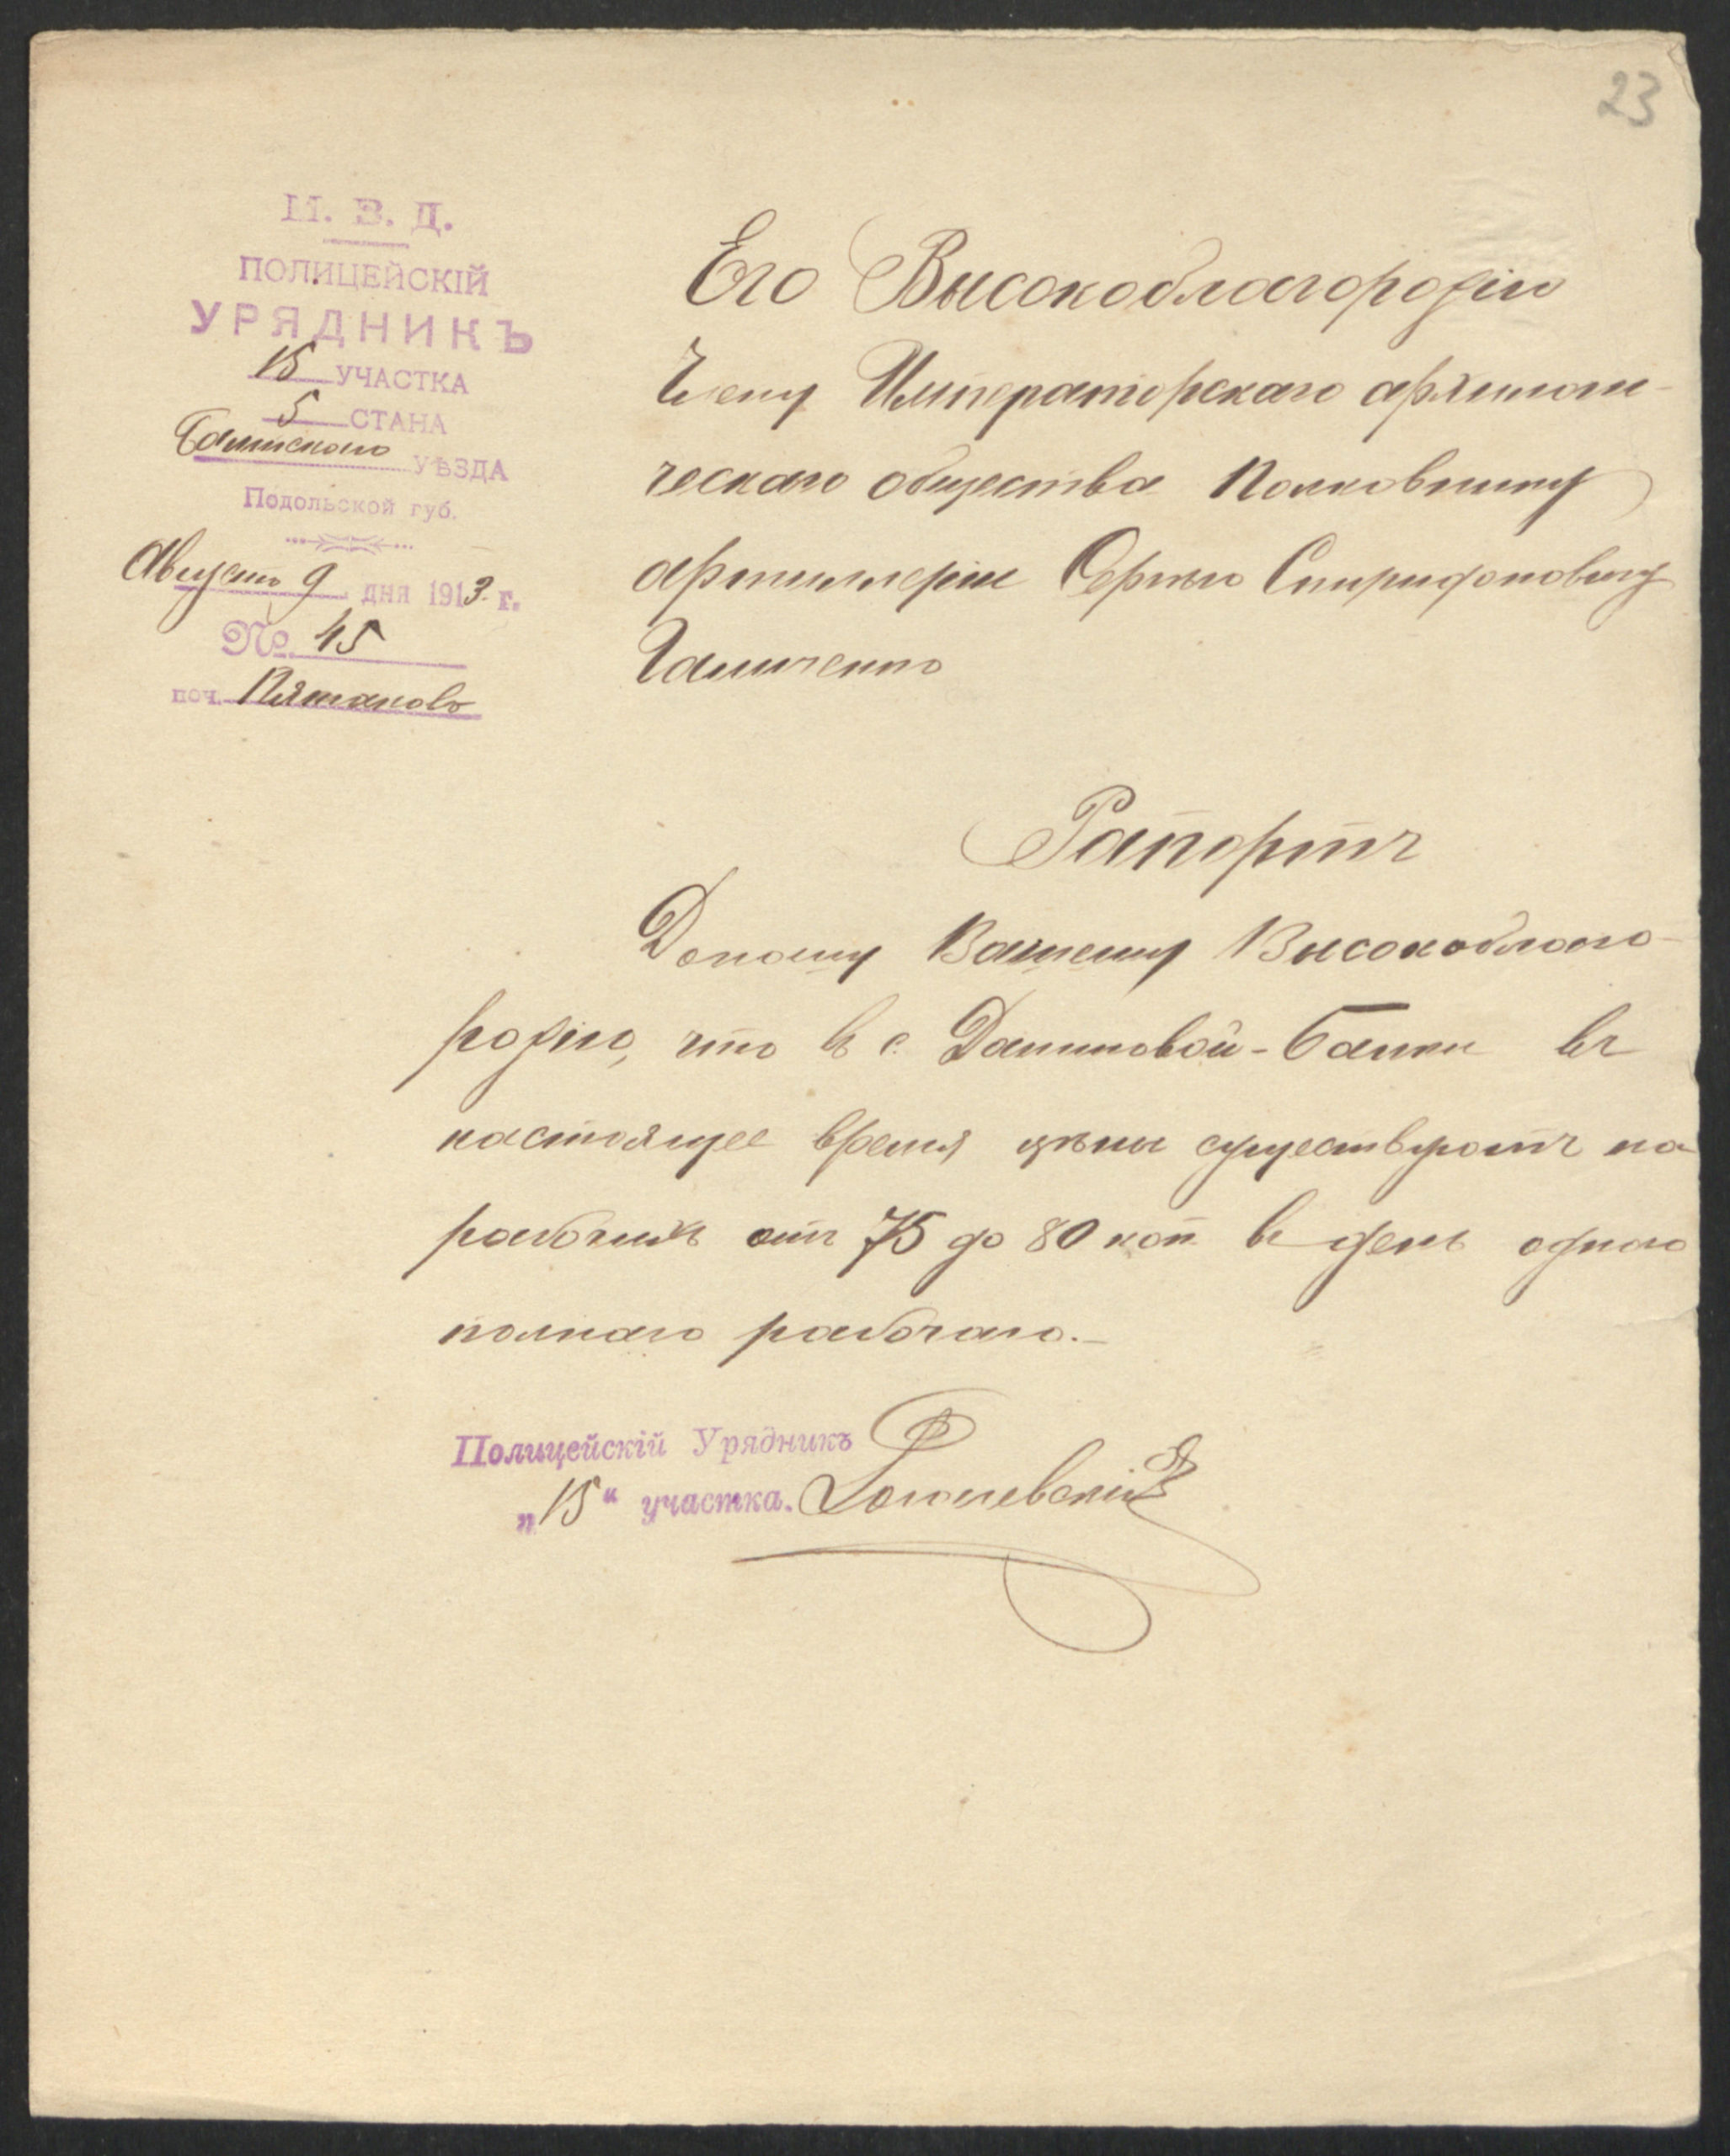 23
М. В. Д.
ПОЛИЦЕЙСКІЙ
УРЯДНИКЪ
15 УЧАСТКА
5 СТАНА
УѢЗДА
Подольской губ.
Августа 9 дня 1913 г.
№. 45
поч. Пятковъ
Его Высокоблагородію
Члену Императорскаго археологи-
ческаго общества Полковнику
артиллеріи Сергѣю Спиридоновичу
Гамченко
Рапортъ
Доношу Вашему Высокоблаго-
родію, что въ с. Даниловой-Балки въ
настоящее время цѣны существуютъ на
рабочихъ отъ 75 до 80 коп въ день одного
полнаго рабочаго.-
Полицейскій Урядникъ
„15“ участка.